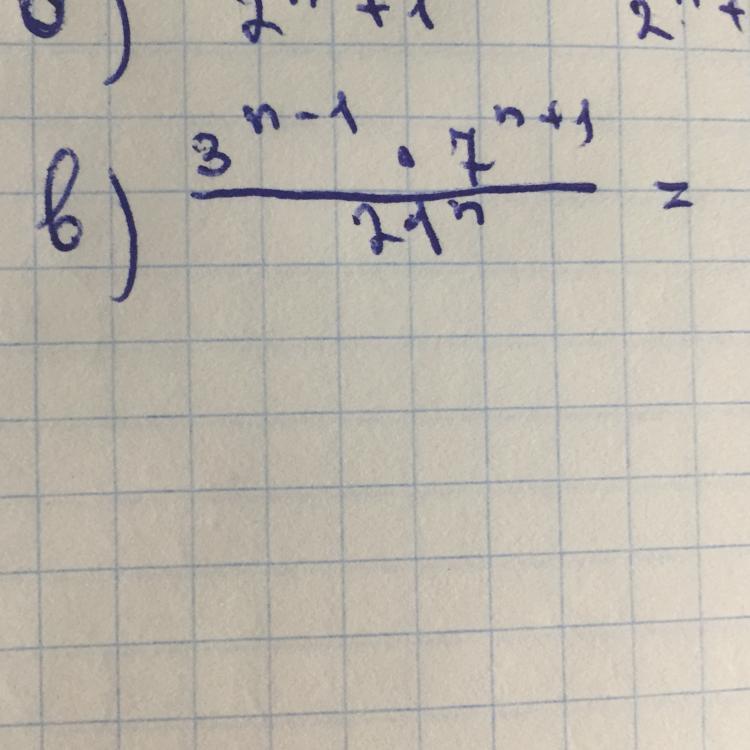 2ⁿ + 1
в) 3ⁿ⁻¹ · 7ⁿ⁺¹ =
21ⁿ